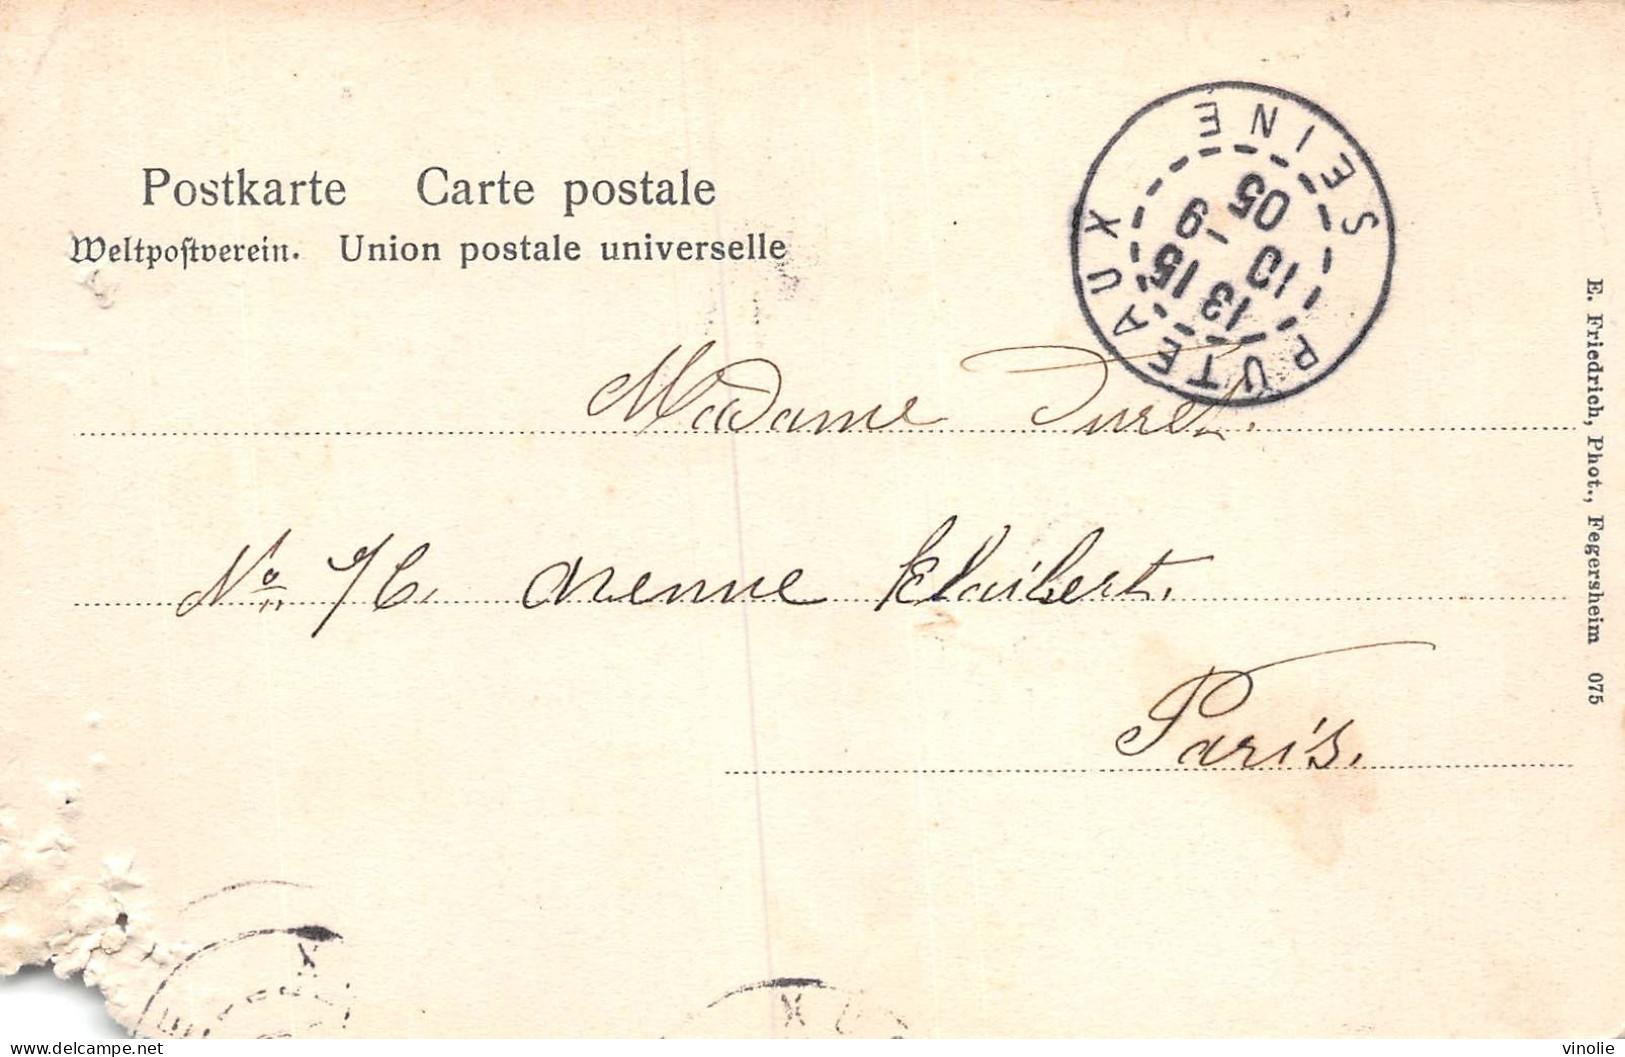 Postkarte Carte postale
Weltpostverein. Union postale universelle
PUTEAUX SEINE
13 15
10 -9
05
Madame
No 76. avenue Klaibert.
Paris.
E. Friedrich, Phot., Fegersheim 075
delcampe.net
vinolie